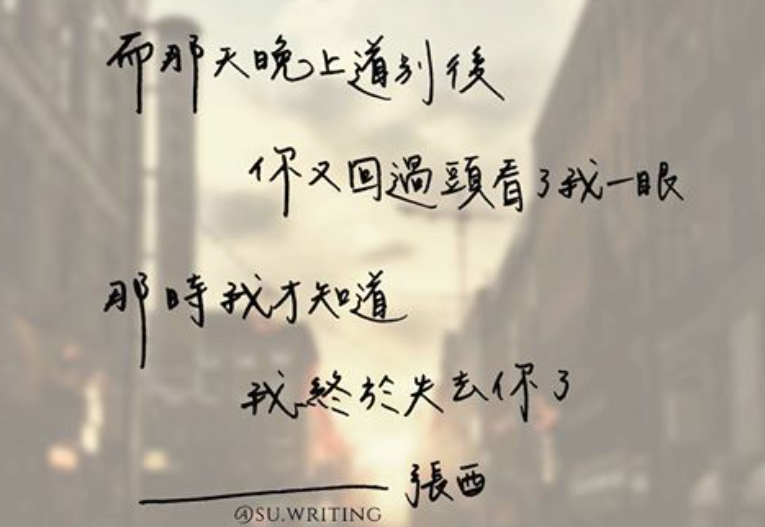 而那天晚上道別後
你又回過頭看了我一眼
那時我才知道
我終於失去你了
張西
@SU.WRITING